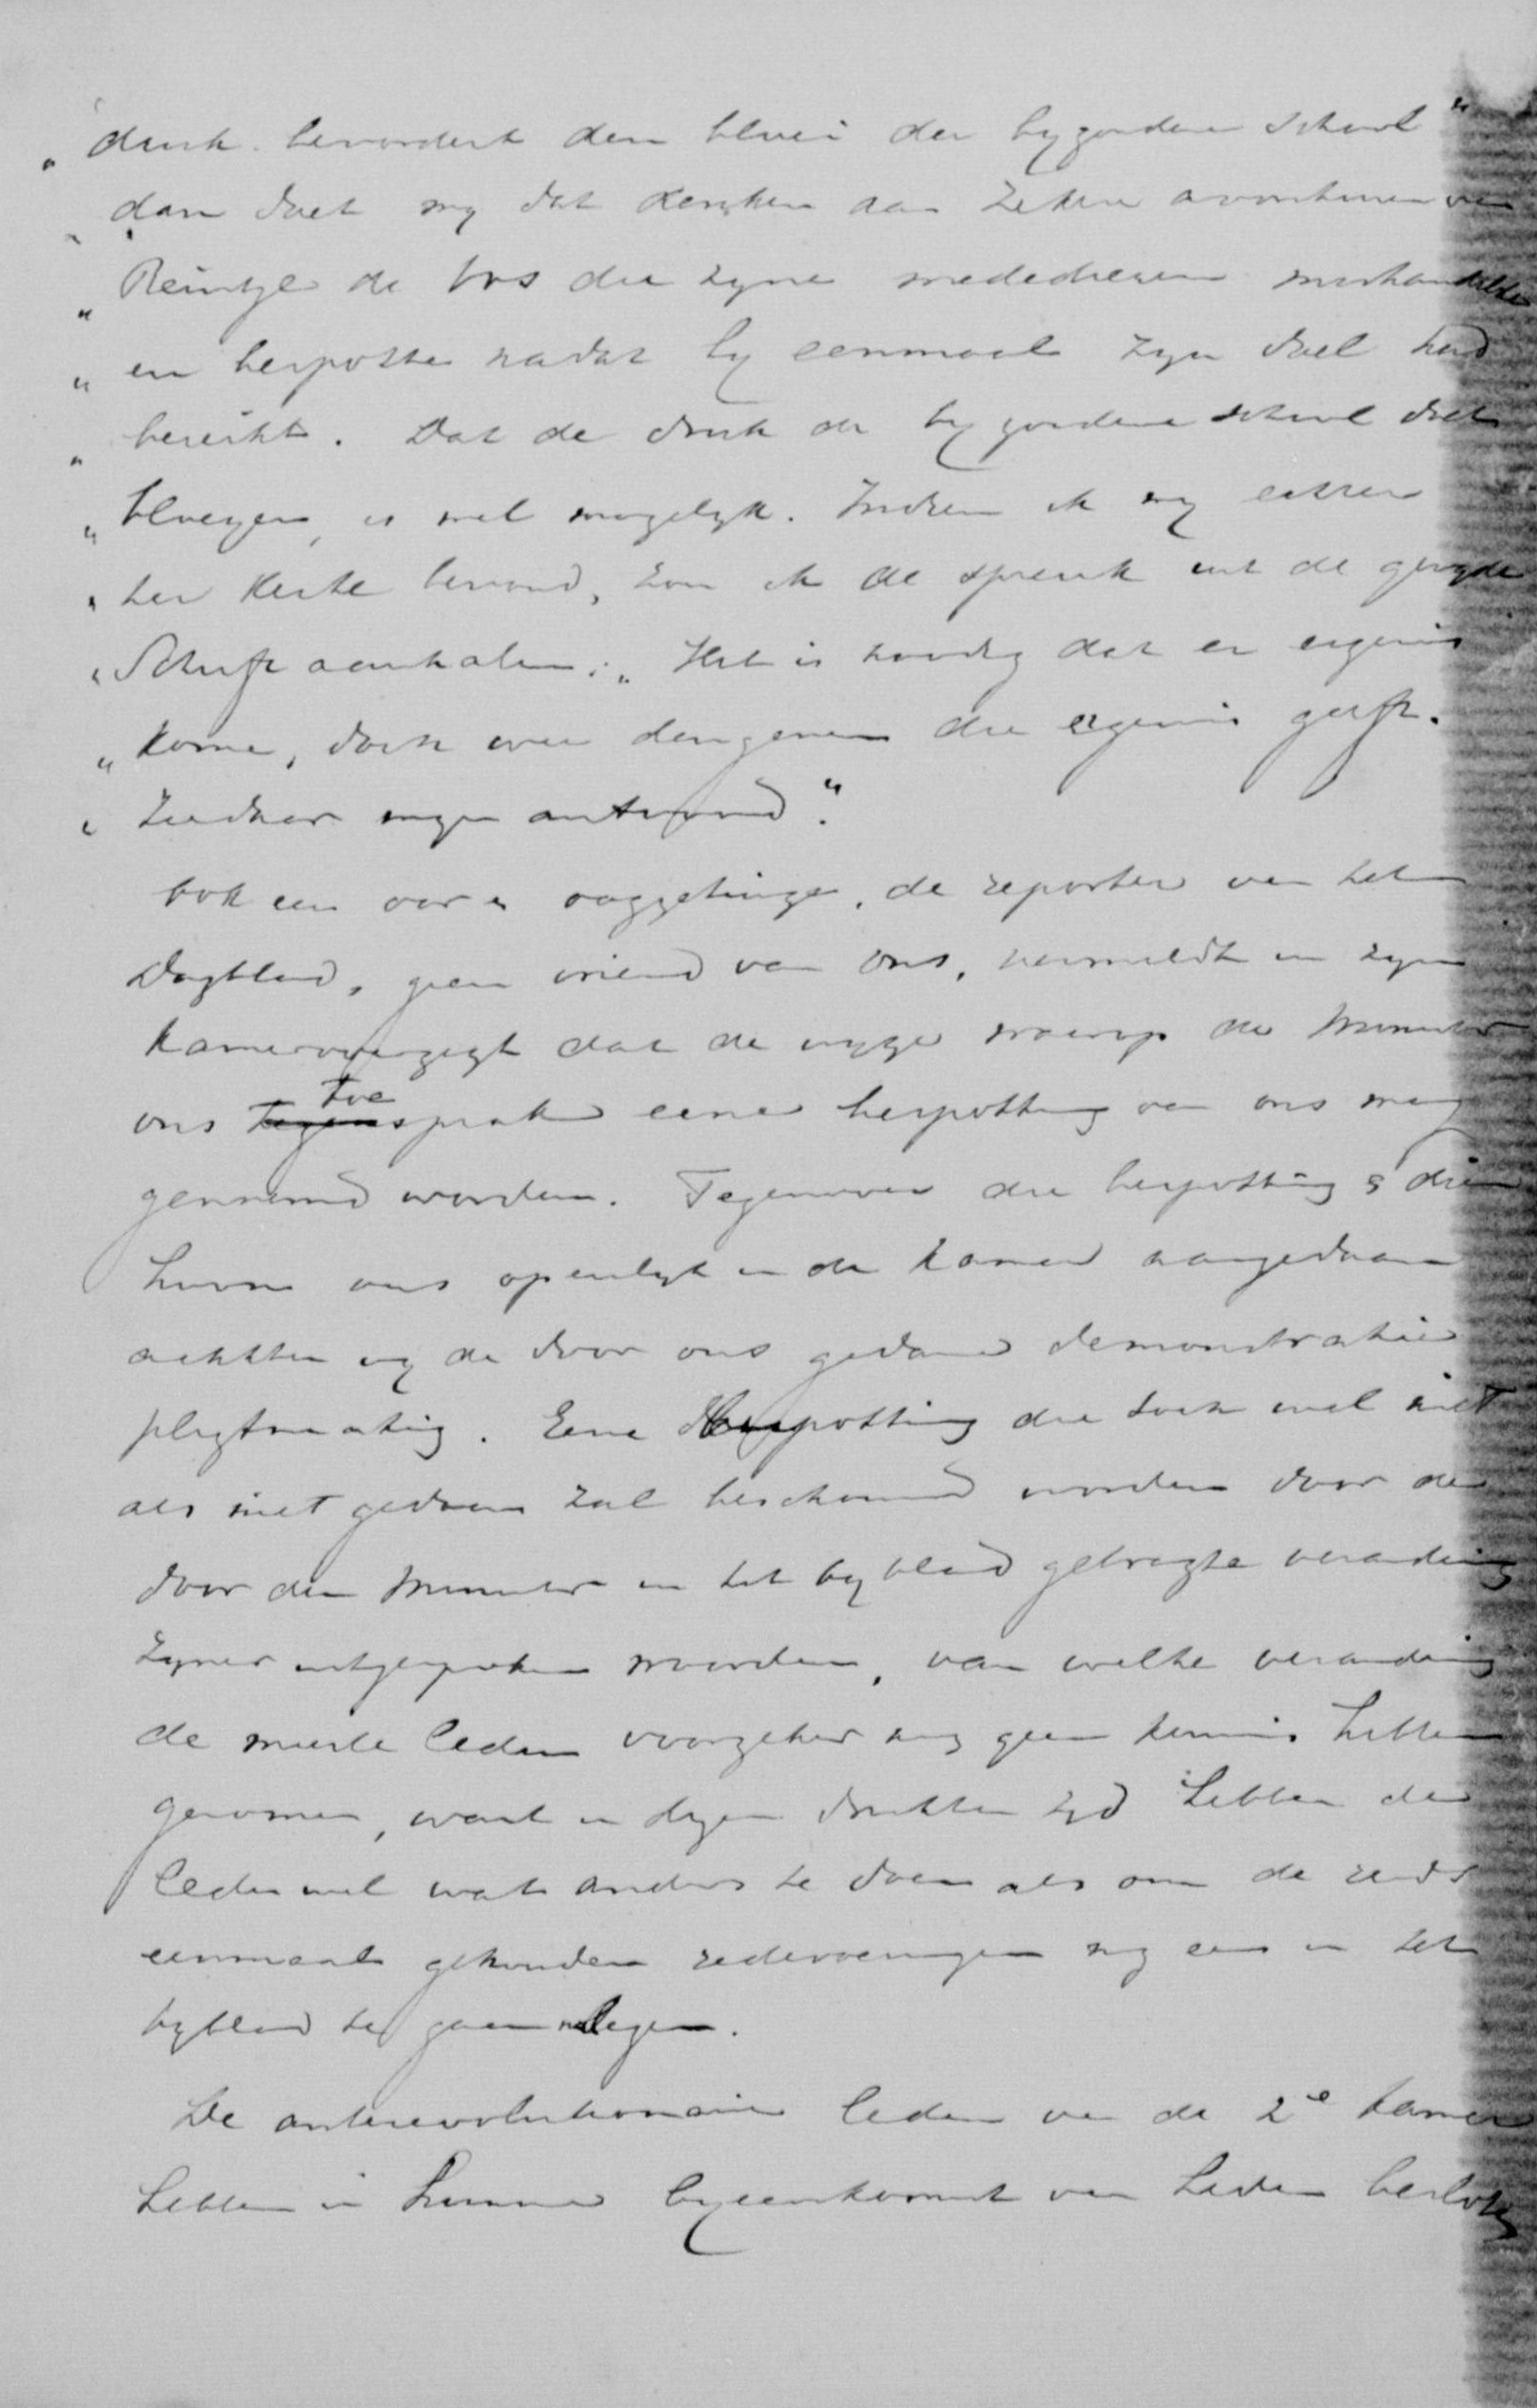 „ druk bevordert den bloei der byzondere school"
„ dan doet my dat denken aan zekere avonturen van
„ Reintje de Vos die zyne mededieren mishandelde
„ en bespotte nadat hy eenmaal zyn doel had
„ bereikt. Dat de druk de byzondere school doet
„ bloeyen, is wel mogelyk. Indien ik my achter
„ het kerk bevond, zou ik de spreuk uit de gewyde
„ Schrift aanhalen: „ Het is noodig dat er ergernis
„ kome, doch wee dengenen die ergernis geeft.
„ Ziedaar myn antwoord."
Ook een oor en ooggetuige, de reporter van het
Dagblad, geen vriend van ons, vermeldt in zyn
kameroverzigt dat de wyze waarop de Minister
ons toesprak eene bespotting van ons mag
genoemd worden. Tegenover die bespotting & dien
hoon ons openlyk in de kamer aangedaan
achtten wy de door ons gedane demonstratie
pligtmatig. Eene bespotting die toch wel niet
als niet gedaan zal beschouwd worden door de
door den Minister in het byblad gebragte verandering
zyner uitgesproken woorden, van welke verandering
de meeste leden voorzeker nog geen kennis hebben
genomen, want in dezen drukken tyd hebben de
leden wel wat anders te doen als om de reeds
eenmaal gehouden redevoeringen nog eens in het
byblad te gaan nalezen.
De antirevolutionaire leden van de 2e kamer
hebben in hunne byeenkomst van heden besloten